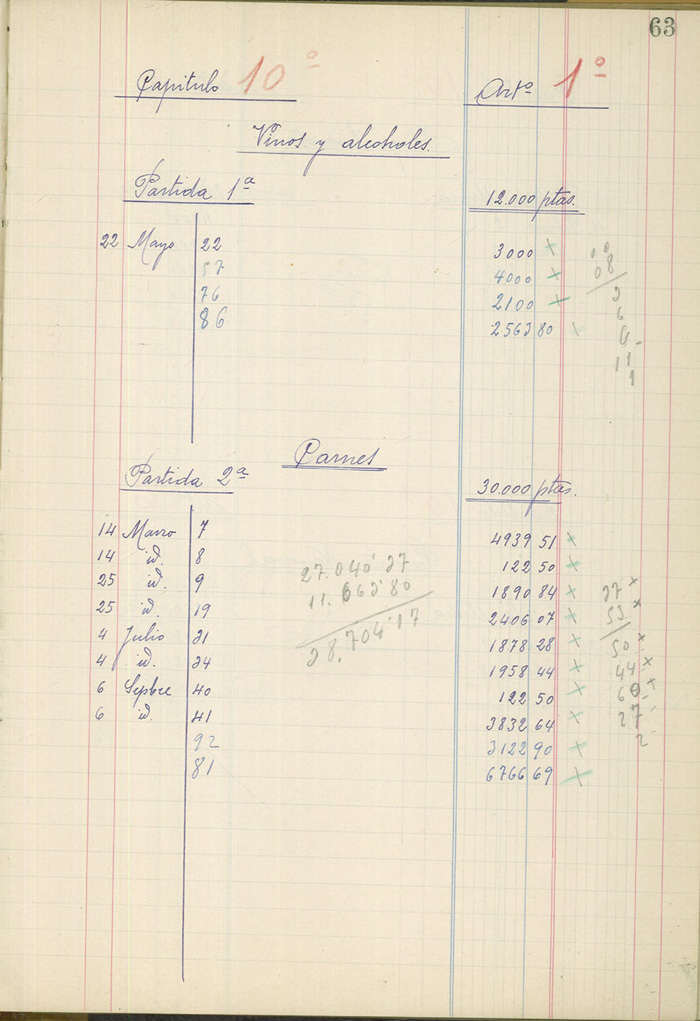 63
Capitulo 10º Artº 1º
Vinos y alcoholes.
Partida 1ª 12.000 ptas.
22 Mayo 22 3000 x
57 4000 x
76 2100 x
86 2563 80
08
2
6
11
1
Carnes
Partida 2ª 30.000 ptas.
14 Marzo 7 4939 51 x
14 id. 8 122 50 x
25 id. 9 1890 84 x
25 id. 19 2406 07 x
4 Julio 21 1878 28 x
4 id. 24 1958 44 x
6 Sepbre 40 122 50 x
6 id. 41 3832 64 x
92 3122 90 x
81 6766 69 x
27.040'27
11.663'80
28.704'17
27 x
53 x
50 x
44 x
60
27
2